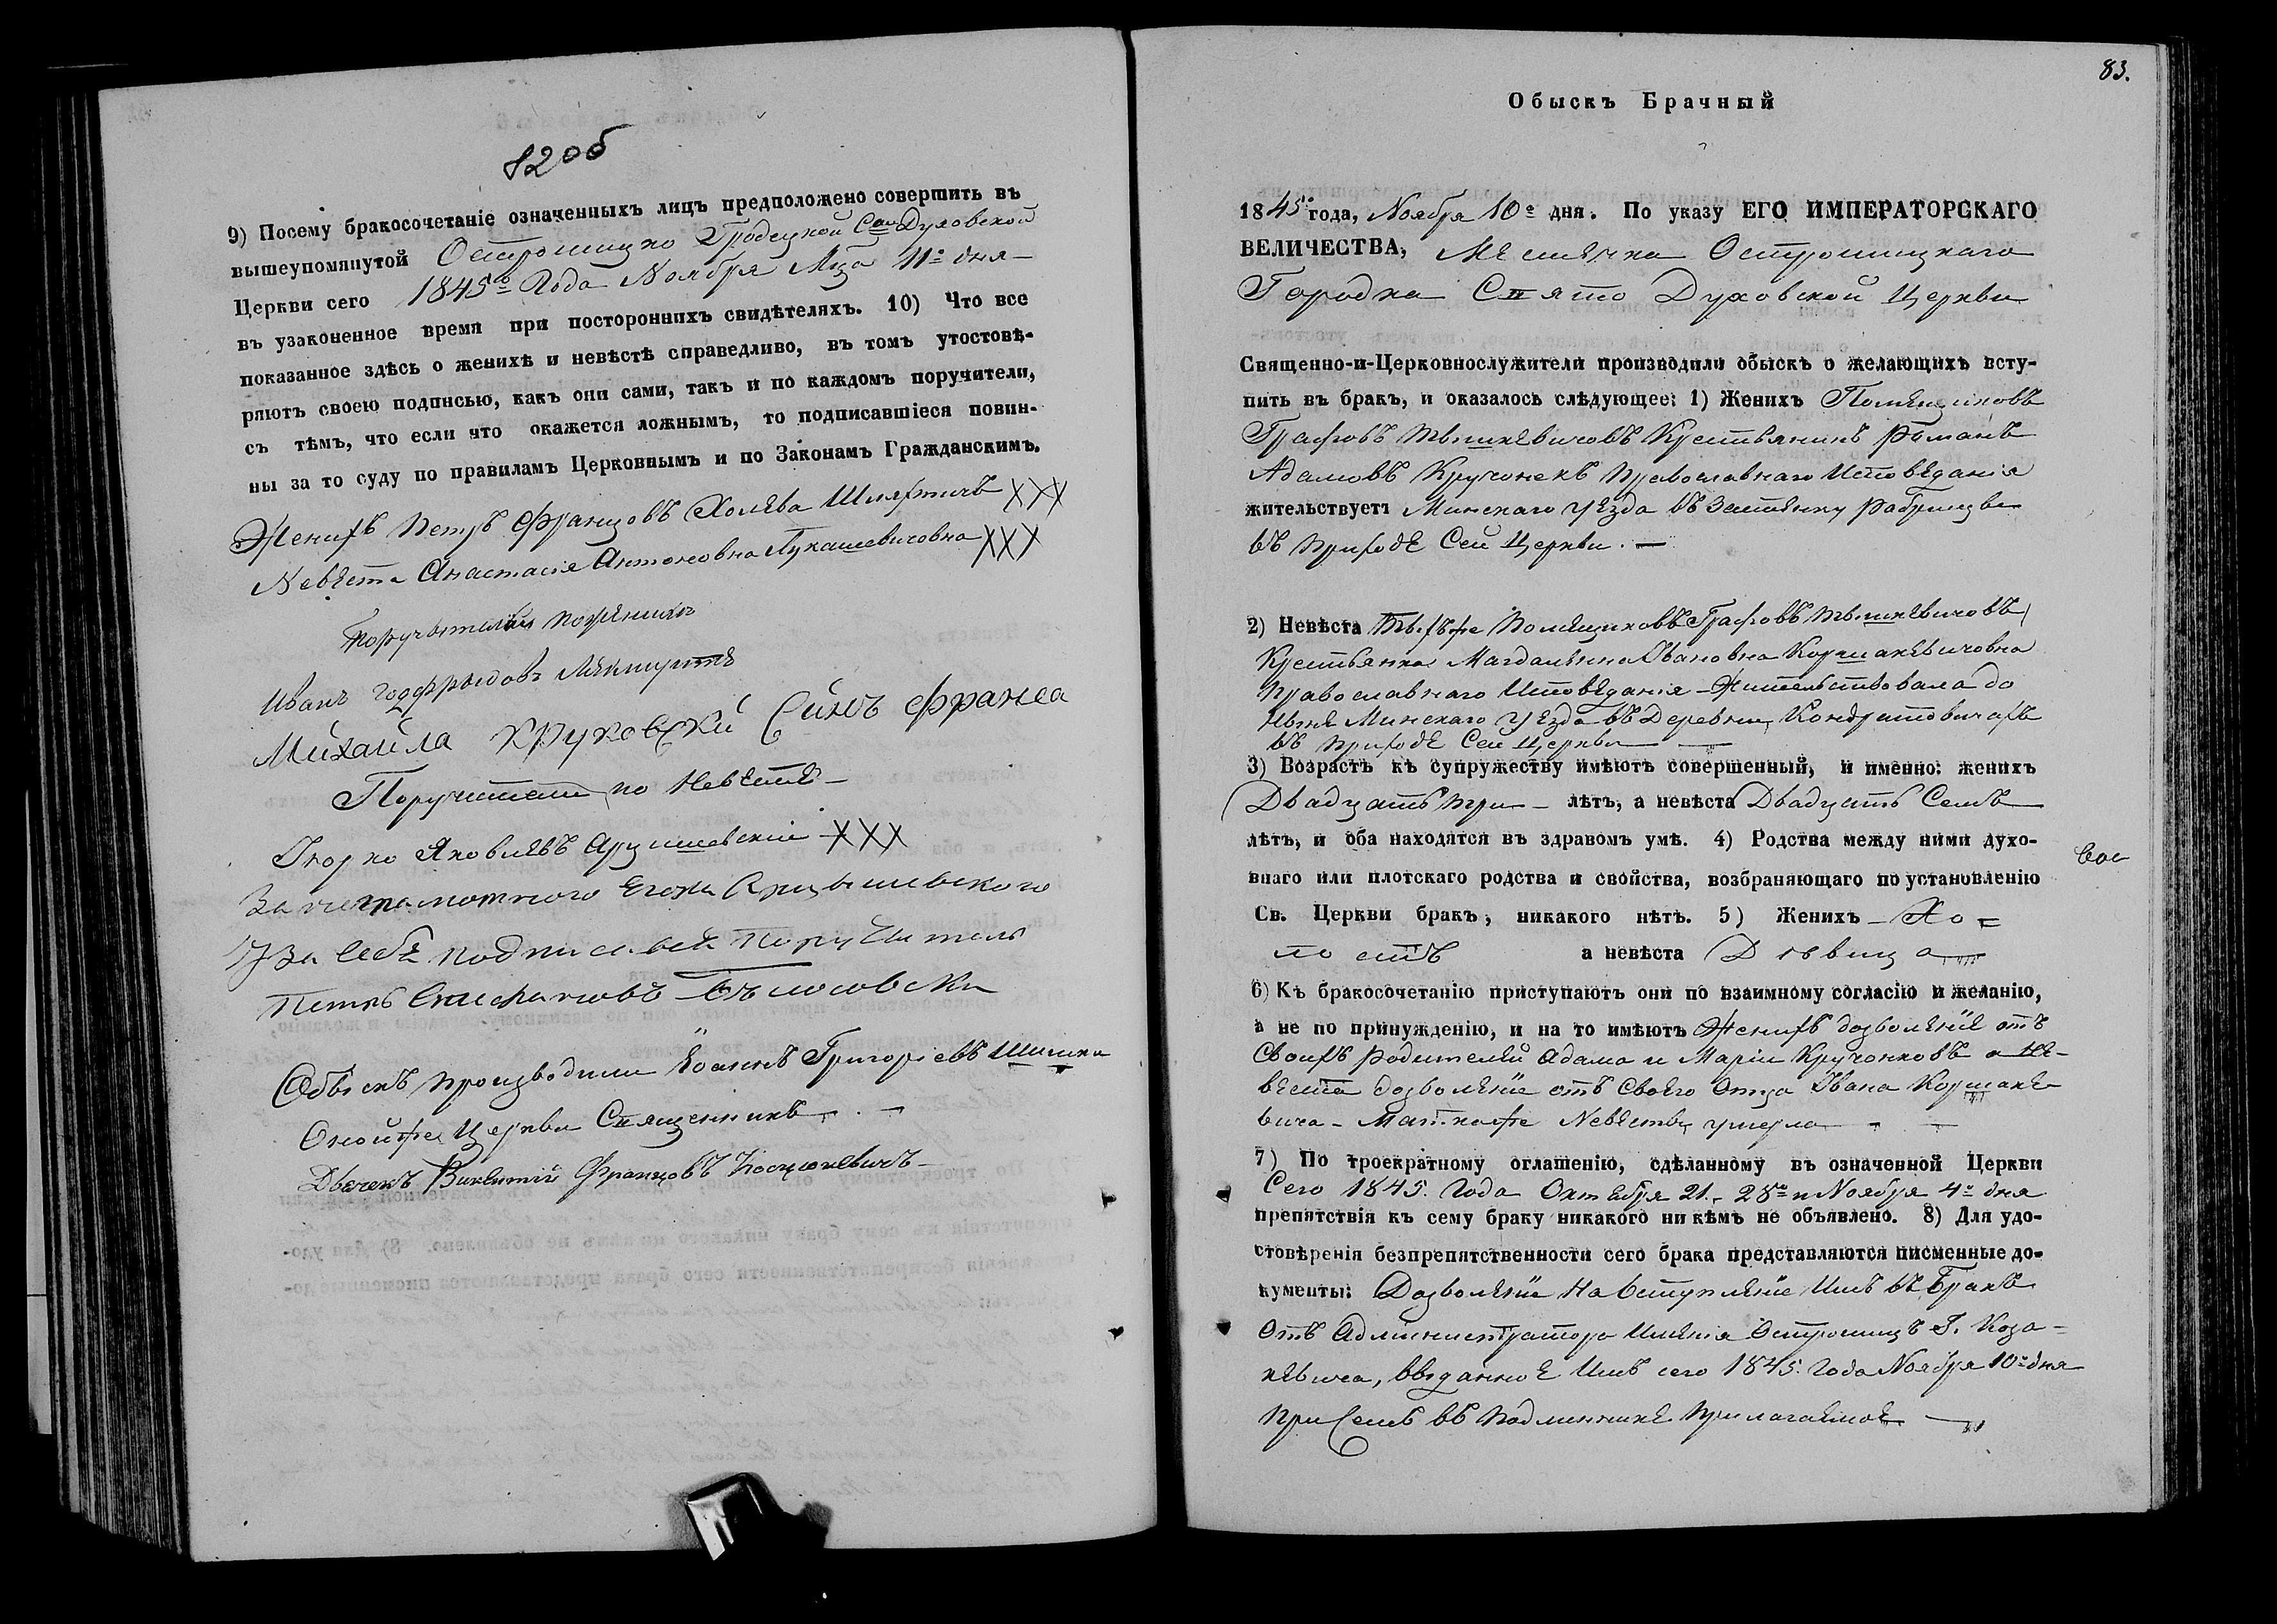 82 об
9) Посему бракосочетаніе означенныхъ лицъ предположено совершить въ
вышеупомянутой Острошицко Городецкой Свят Духовской
Церкви сего 1845го Года Ноября Мца 11го дня
въ узаконенное время при постороннихъ свидѣтеляхъ. 10) Что все
показанное здѣсь о женихѣ и невѣстѣ справедливо, въ томъ утостовѣ-
ряютъ своею подписью, какъ они сами, такъ и по каждомъ поручители,
съ тѣмъ, что если что окажется ложнымъ, то подписавшіеся повин-
ны за то суду по правиламъ Церковнымъ и по Законамъ Гражданскимъ.
Женихъ Петръ Францовъ Холѣва Шляхтичъ ХХХ
Невѣста Анастасія Антоновна Лукашевичовна ХХХ
Поручители по женихѣ
Иванъ
Михайла Круковскій Сынъ Франса
Поручители по Невѣстѣ
Яковлевъ ХХХ
За неграмотного
и За себе подписалься Поручитель
Петръ
Обыскъ производили Іоаннъ Григоріевъ Шишка
Оной же Церкви Священникъ
Дьячекъ Викентій Францовъ Косцюкевичъ
83.
Обыскъ Брачный
1845го года, Ноября 10го дня. По указу ЕГО ИМПЕРАТОРСКАГО
ВЕЛИЧЕСТВА, Мѣстечка Острошицкаго
Городка Свято Духовской Церкви
Священно-и-Церковнослужители производили обыскъ о желающихъ всту-
пить въ бракъ, и оказалось слѣдующее: 1) Женихъ Помѣщиковъ
Графовъ Тышкевичовъ Крестьянинъ Романъ
Адамовъ Кручонекъ Православнаго Исповѣданія
жительствуетъ Минскаго уезда въ Застѣнку
въ приходѣ Сей Церкви. —
2) Невѣста Тѣхъ же Помѣщиковъ Графовъ Тышкевичовъ
Крестьянка Магдалѣна Ивановна Коршакевичовна
Православнаго Исповѣданія Жительствовала до
нынѣ Минскаго уезда въ Деревни Кондратовичахъ
въ приходѣ Сей Церкви —
3) Возрастъ къ супружеству имѣютъ совершенный, и именно: женихъ
Двадцать три — лѣтъ, а невѣста Двадцать Семъ
лѣтъ, и оба находятся въ здравомъ умѣ. 4) Родства между ними духо-
внаго или плотскаго родства и свойства, возбраняющаго по установленію
Св. Церкви бракъ, никакого нѣтъ. 5) Женихъ — Хо=
лостъ а невѣста Дѣвица
6) Къ бракосочетанію приступаютъ они по взаимному согласію и желанію,
а не по принужденію, и на то имѣютъ Женихъ дозволѣніе отъ
Своихъ родителей Адама и Маріи Кручонковъ а Не-
вѣста дозволѣніе отъ своего Отца Ивана Коршаке
вича — Матка же Невѣсты умерла — —
7) По троекратному оглашенію, сдѣланному въ означенной Церкви
Сего 1845. Года Октября 21. 28го и Ноября 4го дня
препятствія къ сему браку никакого ни кѣмъ не объявлено. 8) Для удо-
стовѣренія безпрепятственности сего брака представляются писменные до-
кументы: Дозволѣніе на вступлѣніе Имъ въ Бракъ
Отъ Администратора Имѣнія Острошицъ Г. Коза-
кевича, выданное Имъ сего 1845. Года Ноября 10го дня
при семъ въ подлинникѣ прилагаемое —